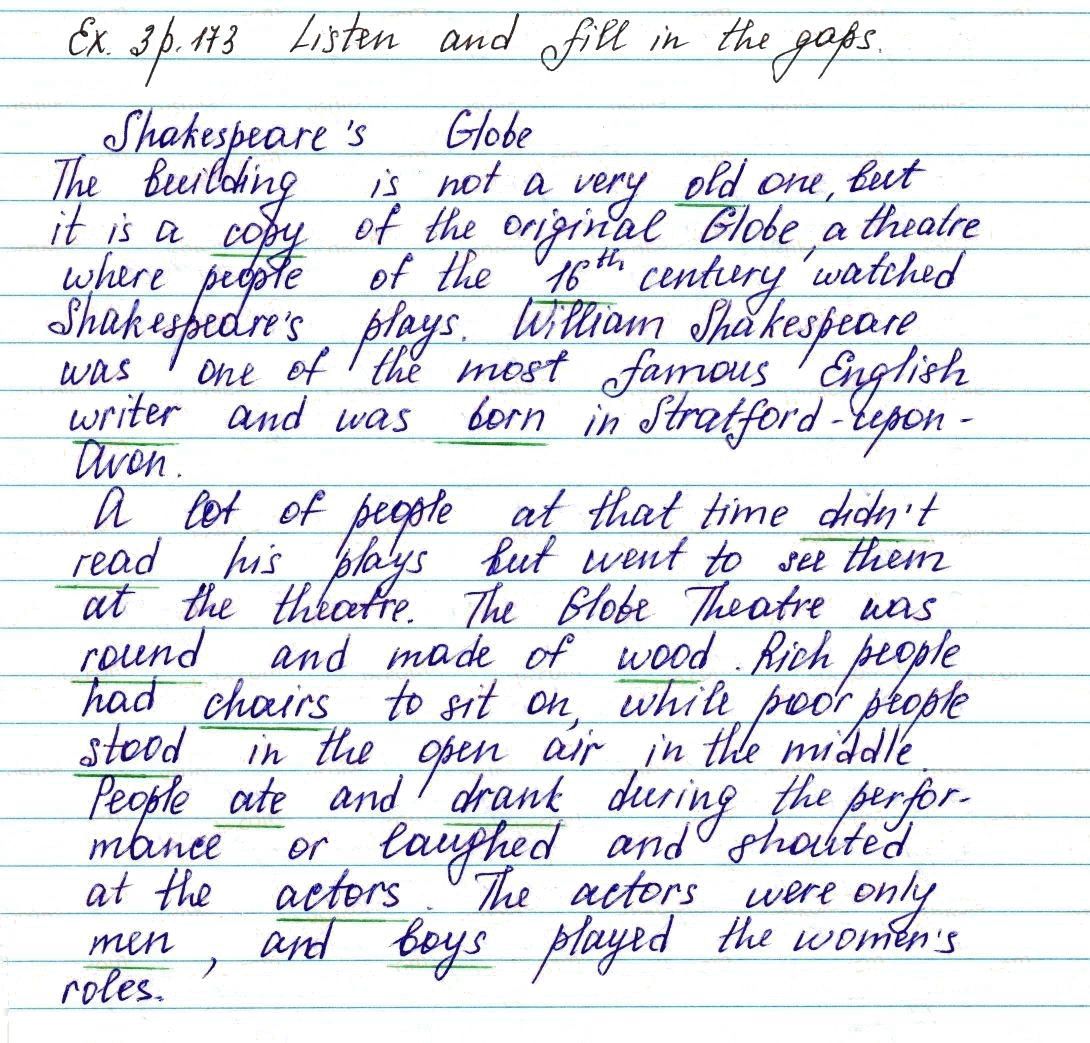 Ex. 3 p. 173 Listen and fill in the gaps.
Shakespeare's Globe
The building is not a very old one, but
it is a copy of the original Globe, a theatre
where people of the 16th century watched
Shakespeare's plays. William Shakespeare
was one of the most famous English
writer and was born in Stratford-upon-
Avon.
A lot of people at that time didn't
read his plays but went to see them
at the theatre. The Globe Theatre was
round and made of wood. Rich people
had chairs to sit on, while poor people
stood in the open air in the middle.
People ate and drank during the perfor-
mance or laughed and shouted
at the actors. The actors were only
men, and boys played the women's
roles.